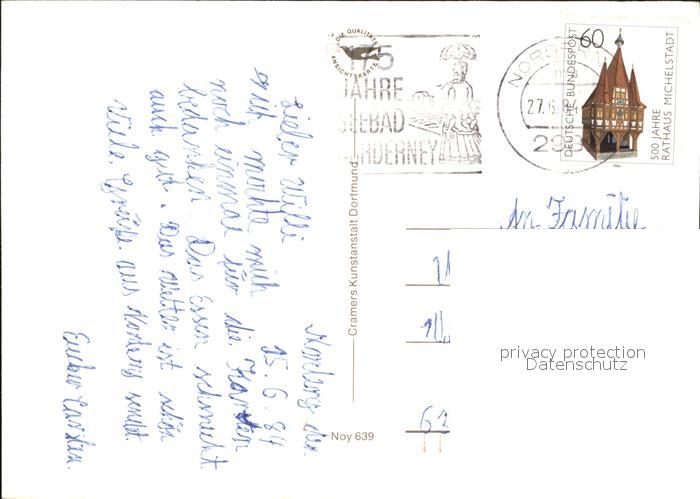 Norderney den
25.6.84
Lieber Willi
Ich möchte mich
noch einmal für die Karten
bedanken. Das Essen schmeckt
auch gut. Das Wetter ist schön
viele Grüße aus Norderney sendet
Carsten.
DIE QUALITÄTS
ANSICHTSKARTE
175
JAHRE
SEEBAD
NORDERNEY
27.6.84
298
60
DEUTSCHE BUNDESPOST
500 JAHRE
RATHAUS MICHELSTADT
1984
Cramers Kunstanstalt Dortmund
Noy 639
An Familie
privacy protection
Datenschutz